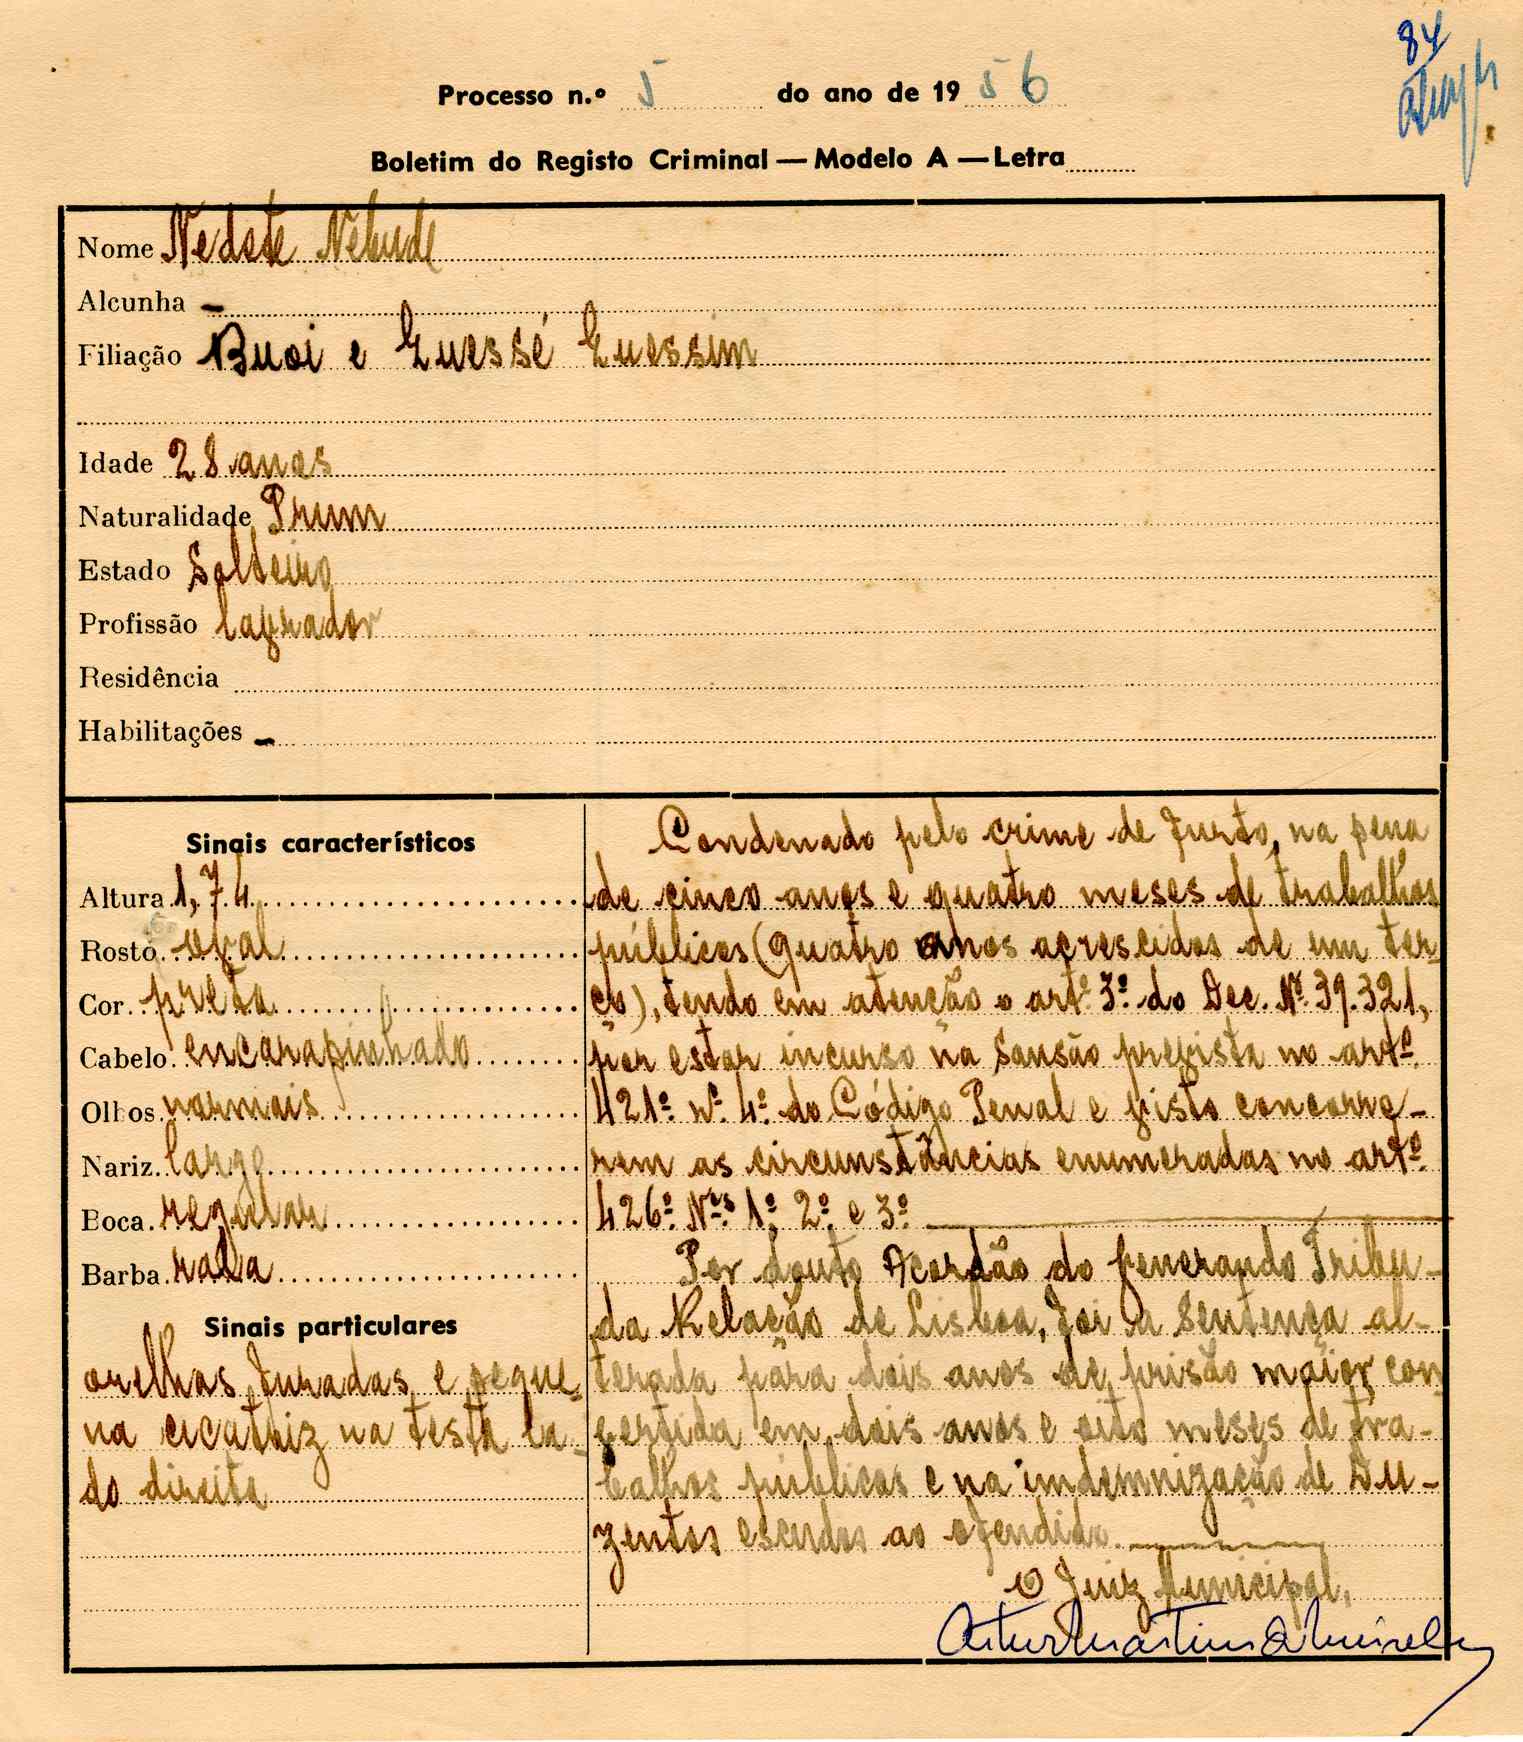 84
Processo n.º 5 do ano de 1956
Boletim do Registo Criminal — Modelo A — Letra
Nome Nedete Nebude
Alcunha –
Filiação Buoi e Guessé Guessim
Idade 28 anos
Naturalidade Prum
Estado Solteiro
Profissão lavrador
Residência
Habilitações –
Sinais característicos
Altura 1,74
Rosto oval
Cor preta
Cabelo encarapinhado
Olhos normais
Nariz largo
Boca regular
Barba rala
Sinais particulares
orelhas furadas e peque-
na cicatriz na testa la-
do direito
Condenado pelo crime de furto, na pena
de cinco anos e quatro meses de trabalhos
públicos (quatro anos acrescidos de um ter-
ço), tendo em atenção o artº 3º do Dec. Nº 39.321,
por estar incurso na Sansão prevista no artº
421º nº 4º do Código Penal e visto concorre-
rem as circunstâncias enumeradas no artº
426º Nºs 1º, 2º e 3º
Por douto Acordão do Venerando Tribu-
da Relação de Lisboa, foi a Sentença al-
terada para dois anos de prisão maior con
vertida em dois anos e oito meses de tra-
balhos públicos e na indemnização de Du-
zentos escudos ao ofendido.
O Juiz Municipal,
Artur Martins